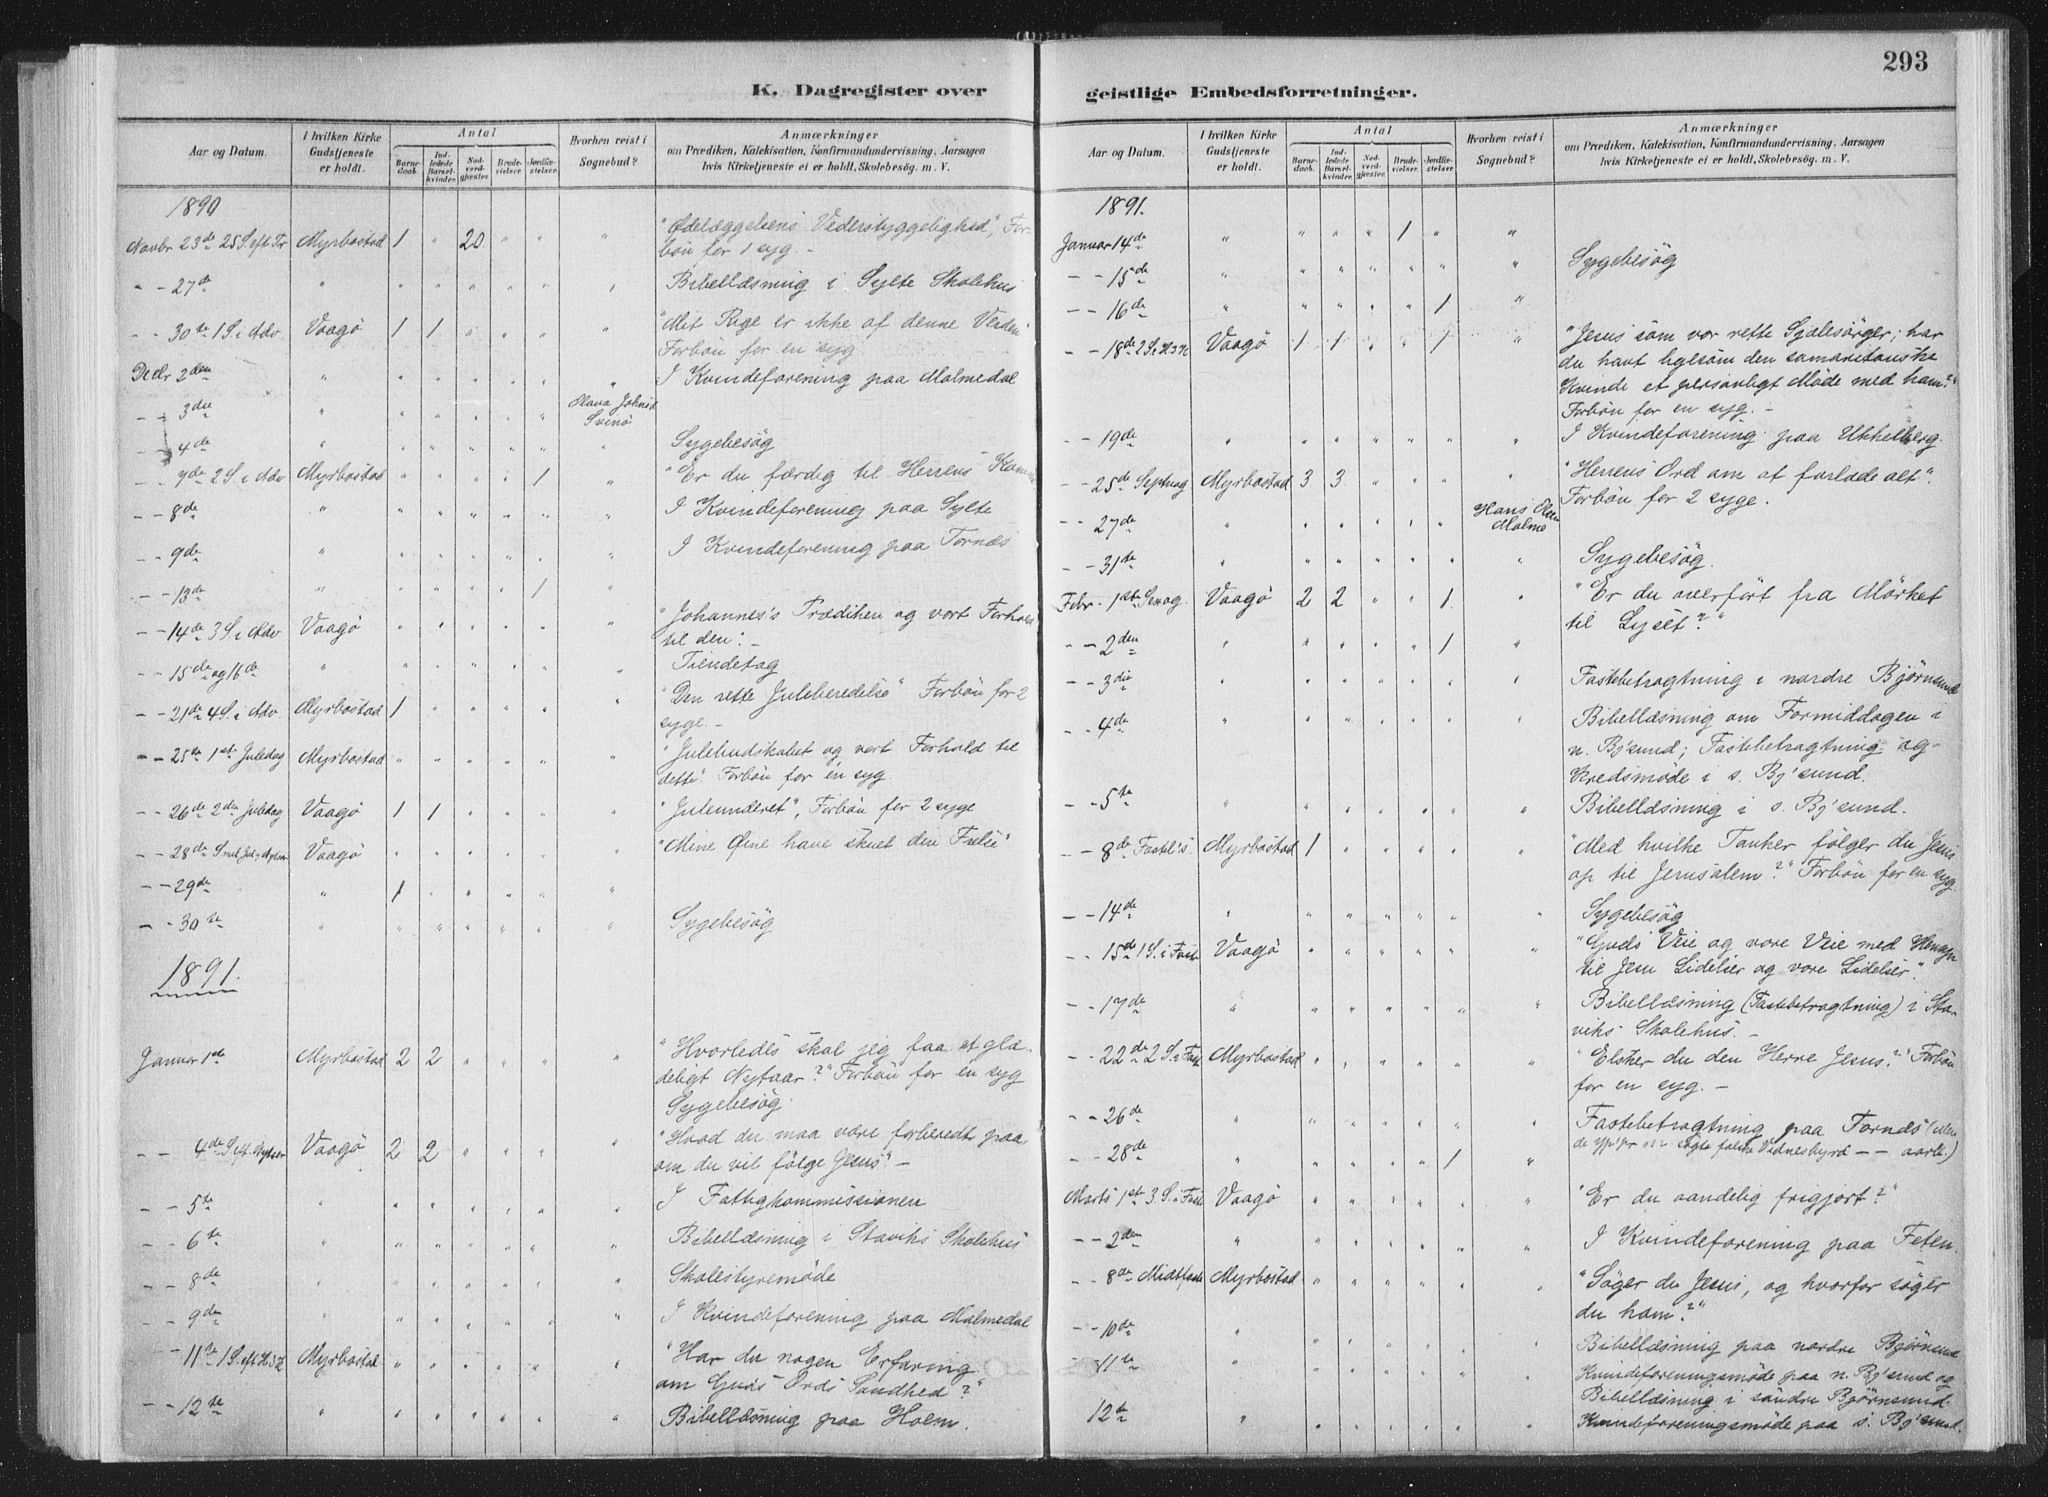 293
K. Dagregister over
geistlige Embedsforretninger.
Aar og Datum.
I hvilken Kirke Gudstjeneste er holdt.
Antal
Barnedaab.
Indledede Barselkvinder.
Nadverdgjester.
Brudevielser.
Jordfæstelser.
Hvorhen reist i Sognebud?
Anmærkninger
om Prædiken, Katekisation, Konfirmandundervisning, Aarsagen
hvis Kirketjeneste ei er holdt, Skolebesög. m. V.
1890
Novbr 23de 25 S. eft Tr Myrbostad 1 " 20 " " " "Ødelæggelsens Vederstyggelighed", For-
bön for 1 syg. -
- - 27de " " " " " " " Bibellæsning i Sylte Skolehus
- - 30te 1 S. i Adv Vaagö 1 1 " " " " "Mit Rige er ikke af denne Verden"
Forbön for en syg
Decbr 2den " " " " " " " I Kvindeforening paa Malmedal
- - 3die " " " " " " Johnsd Svinö
- - 4de " " " " " " " Sygebesög
- - 7de 2 S. i Adv Myrbostad " " " " 1 " "Er du færdig til Herrens
- - 8de " " " " " " " I Kvindeforening paa Sylte
- - 9de " " " " " " " I Kvindeforening paa Tornæs
- - 13de " " " " " 1 "
- - 14de 3 S. i Adv Vaagö " " " " " " "Johannes's Prædiken og vort Forhold
til den". -
- - 15de og 16de " " " " " " " Tiendetag
- - 21de 4 S. i Adv. Myrbostad 1 " " " " " "Den rette Juleberedelse" Forbön for 2
syge. -
- - 25te 1ste Juledag Myrbostad " " " " " " "Julebudskabet og vort Forhold til
dette". Forbön for én syg.
- - 26de 2den Juledag Vaagö 1 1 " " " " "Juleunderet", Forbön for 2 syge
- - 28de S. mel. Jul. Nytaar Vaagö " " " " " " "Mine Øine have skuet din Frelse"
- - 29de " 1 " " " " "
- - 30te " " " " " " " Sygebesög
1891.
Januar 1ste Myrbostad 2 2 " " " " "Hvorledes skal jeg faa et glæ-
deligt Nytaar?" Forbön for en syg
Sygebesög.
- - 4de S. eft. Nytaar Vaagö 2 2 " " " " "Hvad du maa være forberedt paa
om du vil fölge Jesus". -
- - 5te " " " " " " " I Fattigkommissionen
- - 6te " " " " " " " Bibellæsning i Staviks Skolehus
- - 8de " " " " " " " Skolestyremöde
- - 9de " " " " " " " I Kvindeforening paa Malmedal
- - 11te 1 S. eft H3K Myrbostad " " " " " " "Har du nogen Erfaring
om Guds Ords Sandhed?"
- - 12te " " " " " " " Bibellæsning paa Holm.
Aar og Datum.
I hvilken Kirke Gudstjeneste er holdt.
Antal
Barnedaab.
Indledede Barselkvinder.
Nadverdgjester.
Brudevielser.
Jordfæstelser.
Hvorhen reist i Sognebud?
Anmærkninger
om Prædiken, Katekisation, Konfirmandundervisning, Aarsagen
hvis Kirketjeneste ei er holdt, Skolebesög. m. V.
1891.
Januar 14de " " " " 1 " "
- - 15de " " " " " " " Sygebesög
- - 16de " " " " " 1 "
- - 18de 2 S. e H3K Vaagö 1 1 " " 1 " "Jesus som vor rette Sjælesörger; har
du havt ligesom den samaritanske
Kvinde et personligt Möde med ham?"
Forbön for en syg. -
- - 19de " " " " " " " I Kvindeforening paa Ukkelberg.
- - 25de Septuag Myrbostad 3 3 " " " " "Herrens Ord om at forlade alt".
Forbön for 2 syge.
- - 27de " " " " " " Hans Olsen Malme
- - 31te " " " " " " " Sygebesög.
Febr. 1ste Sexag. Vaagö 2 2 " " 1 " "Er du overfört fra Mörket
til Lyset?"
- - 2den " " " " " 1 "
- - 3die " " " " " " " Fastebetragtning i nordre Björnsund
- - 4de " " " " " " " Bibellæsning om Formiddagen i
n. Bj'sund; Fastebetragtning og
Kredsmöde i s. Bj'sund.
- - 5te " " " " " " " Bibellæsning i s. Bj'sund.
- - 8de Fastel's. Myrbostad 1 " " " " " "Med hvilke Tanker fölger du Jesus
op til Jerusalem?" Forbön for en syg.
- - 14de " " " " " " " Sygebesög
- - 15de 1 S. i Faste Vaagö " " " " " " "Guds Veie og vore Veie med Hensyn
til Jesu Lidelser og vore Lidelser".
- - 17de " " " " " " " Bibellæsning (Fastebetragtning) i Sta-
viks Skolehus. -
- - 22de 2 S. i Fast Myrbostad " " " " " " "Elsker du den Herre Jesus?" Forbön
for en syg. -
- - 26de " " " " " " " Fastebetragtning paa Tornæs
falske Vidnesbyrd - -
- - 28de " " " " " 1 "
Marts 1ste 3. S. i Faste Vaagö " " " " " " "Er du aandelig frigjort?"
- - 2den " " " " " " " I Kvindeforening paa Feten.
- - 8de Midtfaste Myrbostad " " " " " " "Söger du Jesus, og hvorfor söger
du ham?"
- - 10de " " " " " " " Bibellæsning paa nordre Björnsund
- - 11te " " " " " " " Kvindeforeningsmöde paa n. Bj'sund og
Bibellæsning i söndre Björnsund.
12te " " " " " " " Kvindeforeningsmöde paa s. Bj'sund.